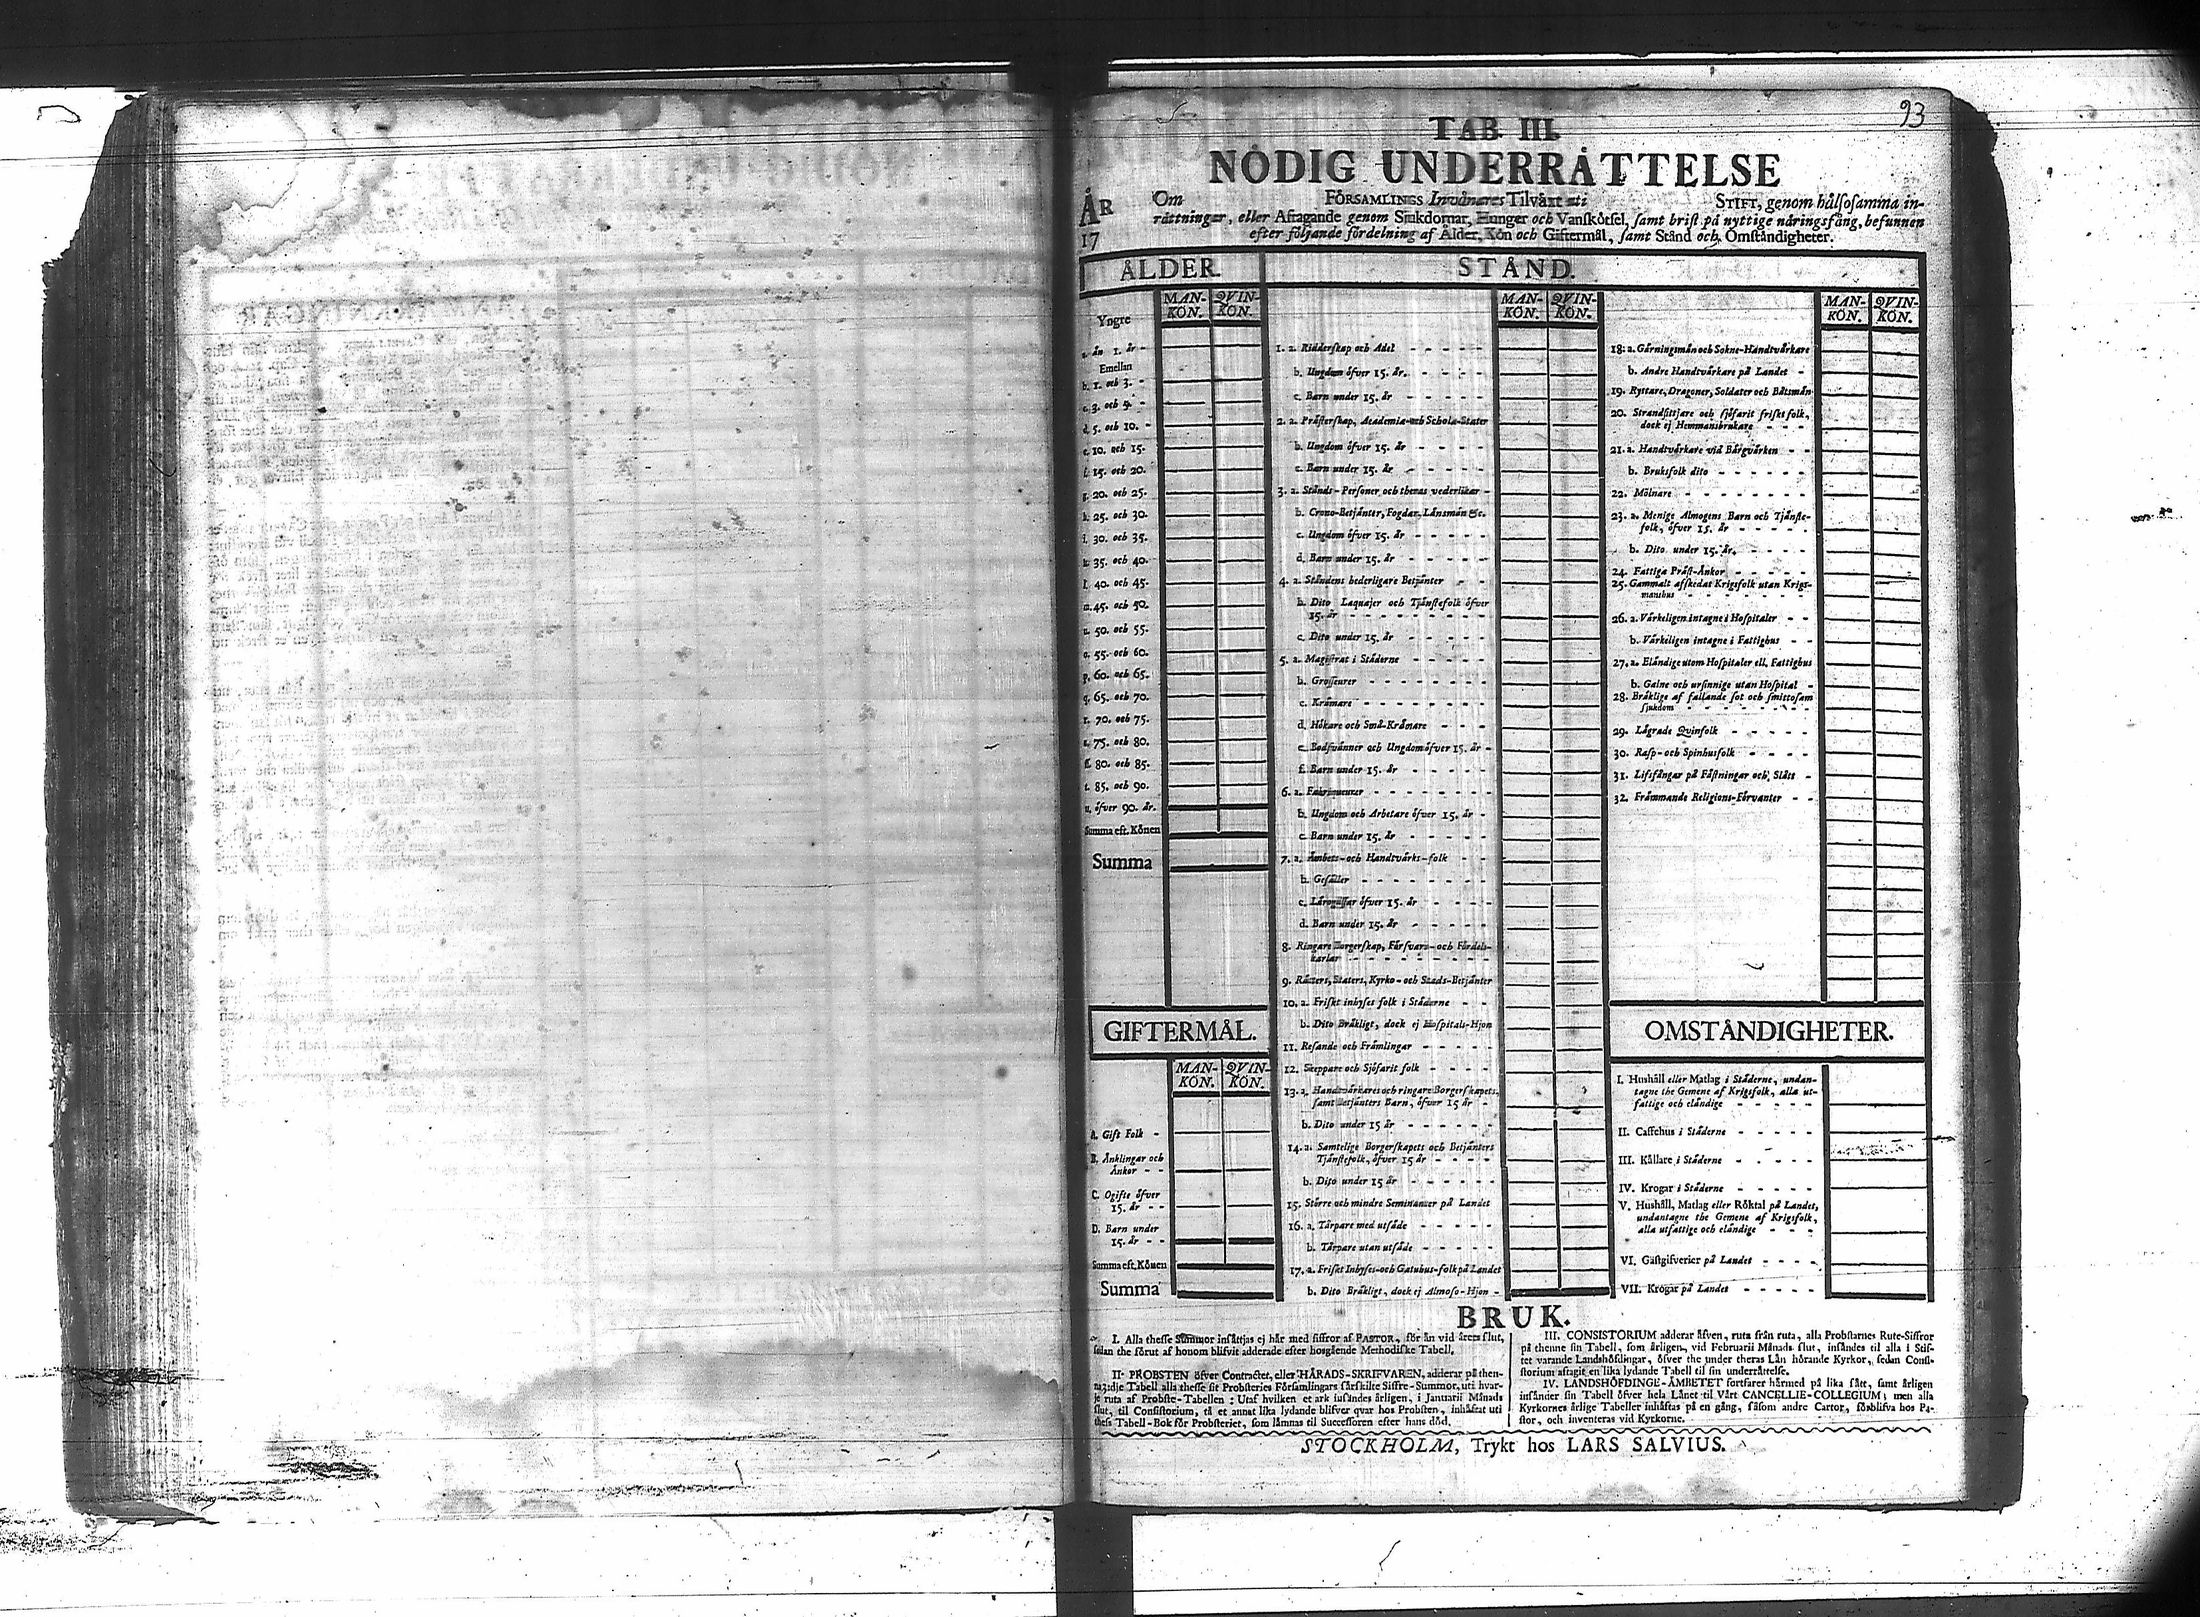 93
TAB. III.
NÖDIG UNDERRÅTTELSE
ÅR
17
Om FÖRSAMLINGS Invånares Tilväxt uti STIFT, genom hålsosamma in-
råttningar, eller Aftagande genom Siukdomar, Hunger och Vanskötsel, samt brist på nyttige näringsfång, befunnen
efter följande fördelning af Ålder, Kön och Giftermål, samt Stånd och Omståndigheter.
ÅLDER.
MAN-KÖN. QVIN-KÖN.
Yngre
a. än 1. år -
Emellan
b. 1. och 3. -
c. 3. och 5. -
d. 5. och 10. -
e. 10. och 15.
f. 15. och 20.
g. 20. och 25.
h. 25. och 30.
i. 30. och 35.
k. 35. och 40.
l. 40. och 45.
m. 45. och 50.
n. 50. och 55.
o. 55. och 60.
p. 60. och 65.
q. 65. och 70.
r. 70. och 75.
s. 75. och 80.
ſſ. 80. och 85.
t. 85. och 90.
u. öfver 90. år.
Summa eft. Könen
Summa
GIFTERMÅL.
MAN-KÖN. QVIN-KÖN.
A. Gift Folk -
B. Änklingar och
Änkor - -
C. Ogifte öfver
15. år - -
D. Barn under
15. år - -
Summa eft. Könen
Summa
STÅND.
MAN-KÖN. QVIN-KÖN.
1. a. Ridderskap och Adel
b. Ungdom öfver 15. år.
c. Barn under 15. år
2. a. Prästerskap, Academiæ-och Scholæ-Stater
b. Ungdom öfver 15. år
c. Barn under 15. år
3. a. Stånds-Personer och theras vederlikar -
b. Crono-Betjänter, Fogdar, Länsmän &c.
c. Ungdom öfver 15. år
d. Barn under 15. år
4. a. Ståndens hederligare Betjänter
b. Dito Laquajer och Tjänstefolk öfver
15. år
c. Dito under 15. år
5. a. Magistrat i Ståderne
b. Grosseurer
c. Krämare
d. Hökare och Små-Krämare
e. Bodsvänner och Ungdom öfver 15. år -
f. Barn under 15. år
6. a. Fabriqueurer
b. Ungdom och Arbetare öfver 15. år -
c. Barn under 15. år
7. a. Ämbets-och Handtvårks-folk
b. Gesäller
c. Lärogossar öfver 15. år
d. Barn under 15. år
8. Ringare Borgerskap, Försvars-och Fördels-
karlar
9. Råtters, Staters, Kyrko-och Stads-Betjänter
10. a. Friskt inhyses folk i Ståderne
b. Dito Bråkligt, dock ej Hospitals-Hjon
11. Resande och Främlingar
12. Skeppare och Sjöfarit folk
13. a. Handtvårkares och ringare Borgerskapets,
samt Betjänters Barn, öfver 15 år
b. Dito under 15 år
14. a. Samtelige Borgerskapets och Betjänters
Tjänstefolk, öfver 15 år
b. Dito under 15 år
15. Större och mindre Seminanter på Landet
16. a. Tårpare med utsåde
b. Tårpare utan utsåde
17. a. Friskt Inhyses-och Gatuhus-folk på Landet
b. Dito Bråkligt, dock ej Almoso-Hjon -
MAN-KÖN. QVIN-KÖN.
18. a. Gårningsmån och Sokne-Handtvårkare
b. Andre Handtvårkare på Landet -
19. Ryttare, Dragoner, Soldater och Båtsmån
20. Strandsittjare och sjöfarit friskt folk,
dock ej Hemmansbrukare
21. a. Handtvårkare vid Bårgvårken
b. Bruksfolk dito
22. Mölnare
23. a. Menige Almogens Barn och Tjänste-
folk, öfver 15. år
b. Dito under 15. år.
24. Fattiga Präst-Änkor
25. Gammalt afskedat Krigsfolk utan Krigs-
manshus
26. a. Vårkeligen intagne i Hospitaler
b. Vårkeligen intagne i Fattighus
27. a. Elåndige utom Hospitaler ell. Fattighus
b. Galne och ursinnige utan Hospital -
28. Bråklige af fallande sot och smittosam
sjukdom
29. Lågrade Qvinfolk
30. Rasp-och Spinhusfolk
31. Lifsfångar på Fästningar och Slått -
32. Främmande Religions-Förvanter
OMSTÅNDIGHETER.
I. Hushåll eller Matlag i Ståderne, undan-
tagne the Gemene af Krigsfolk, alla ut-
fattige och elåndige
II. Caffehus i Ståderne
III. Kållare i Ståderne
IV. Krogar i Ståderne
V. Hushåll, Matlag eller Röktal på Landet,
undantagne the Gemene af Krigsfolk,
alla utfattige och elåndige
VI. Gästgifverier på Landet
VII. Krogar på Landet
BRUK.
I. Alla thesse Summor insättjas ej hår med siffror af PASTOR, för ån vid årets slut,
sedan the förut af honom blifvit adderade efter hosgående Methodiske Tabell.
II. PROBSTEN öfver Contractet, eller HÅRADS-SKRIFVAREN, adderar på then-
na 3:dje Tabell alla thesse sit Probsteries Församlingars särskilte Siffre-Summor, uti hvar-
je ruta af Probste-Tabellen: Utaf hvilken et ark insåndes årligen, i Januarii Månads
slut, til Consistorium, tå et annat lika lydande blifver qvar hos Probsten, inhåftat uti
thess Tabell-Bok för Probsteriet, som låmnas til Successoren efter hans död.
III. CONSISTORIUM adderar åfven, ruta från ruta, alla Probstarnes Rute-Siffror
på thenne sin Tabell, som årligen, vid Februarii Månads slut, insåndes til alla i Stif-
tet varande Landshöfdingar, öfver the under theras Lån hörande Kyrkor, sedan Consi-
storium aftagit en lika lydande Tabell til sin underråttelse.
IV. LANDSHÖFDINGE-ÄMBETET fortfarer hårmed på lika sått, samt årligen
insånder sin Tabell öfver hela Lånet til Vårt CANCELLIE-COLLEGIUM; men alla
Kyrkornes årlige Tabeller inhåftas på en gång, såsom andre Cartor, förblifva hos Pa-
stor, och inventeras vid Kyrkorne.
STOCKHOLM, Trykt hos LARS SALVIUS.